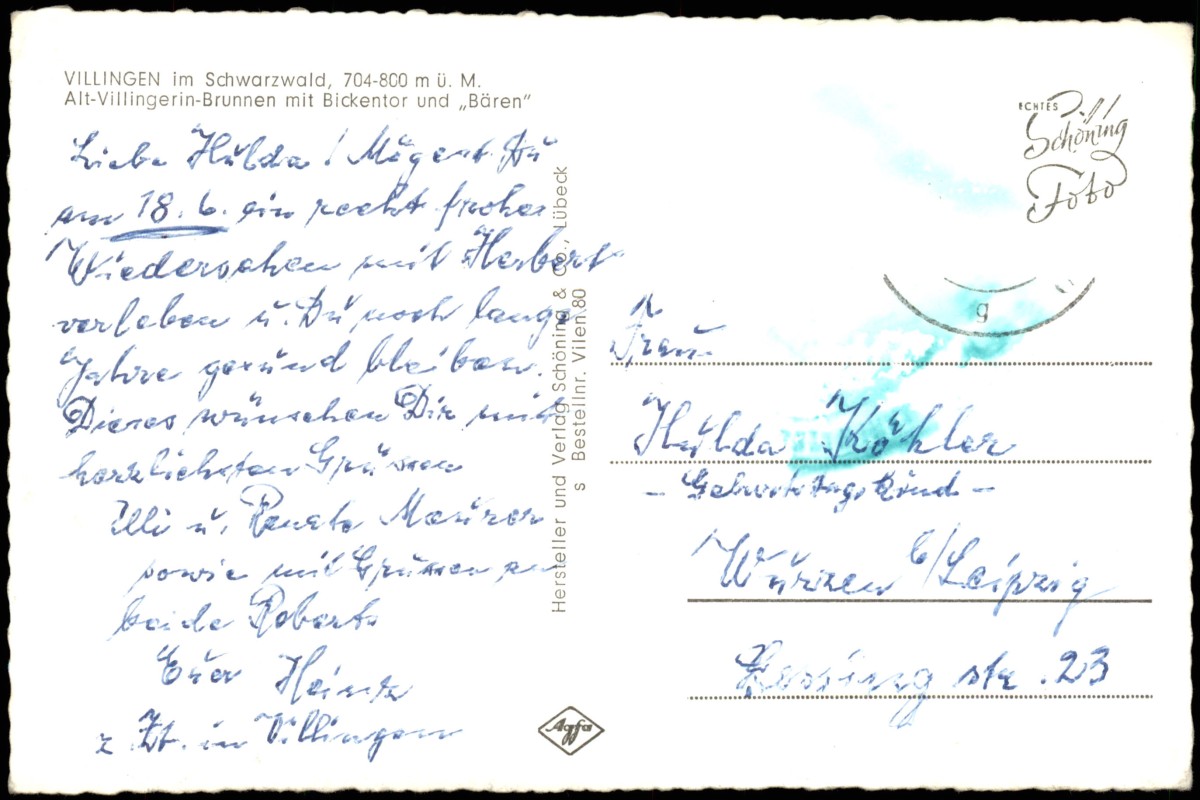 VILLINGEN im Schwarzwald, 704-800 m ü. M.
Alt-Villingerin-Brunnen mit Bickentor und „Bären"
Liebe Hulda! Mögest Du
am 18.6. ein recht frohes
Wiedersehen mit Herbert
verleben u. Du noch lange
Jahre gesund bleiben.
Dieses wünschen Dir mit
herzlichsten Grüssen
Illi u. Renate Maurer
sowie mit Grüssen an
beide Roberts
Euer Heintz
z. Zt. in Villingen
Hersteller und Verlag Schöning & Co., Lübeck
s Bestellnr. Vilen 80
Agfa
ECHTES
Schöning
Foto
g
Frau
Hulda Köhler
- Geburtstagskind -
Wurzen b/Leipzig
Lessing str. 23